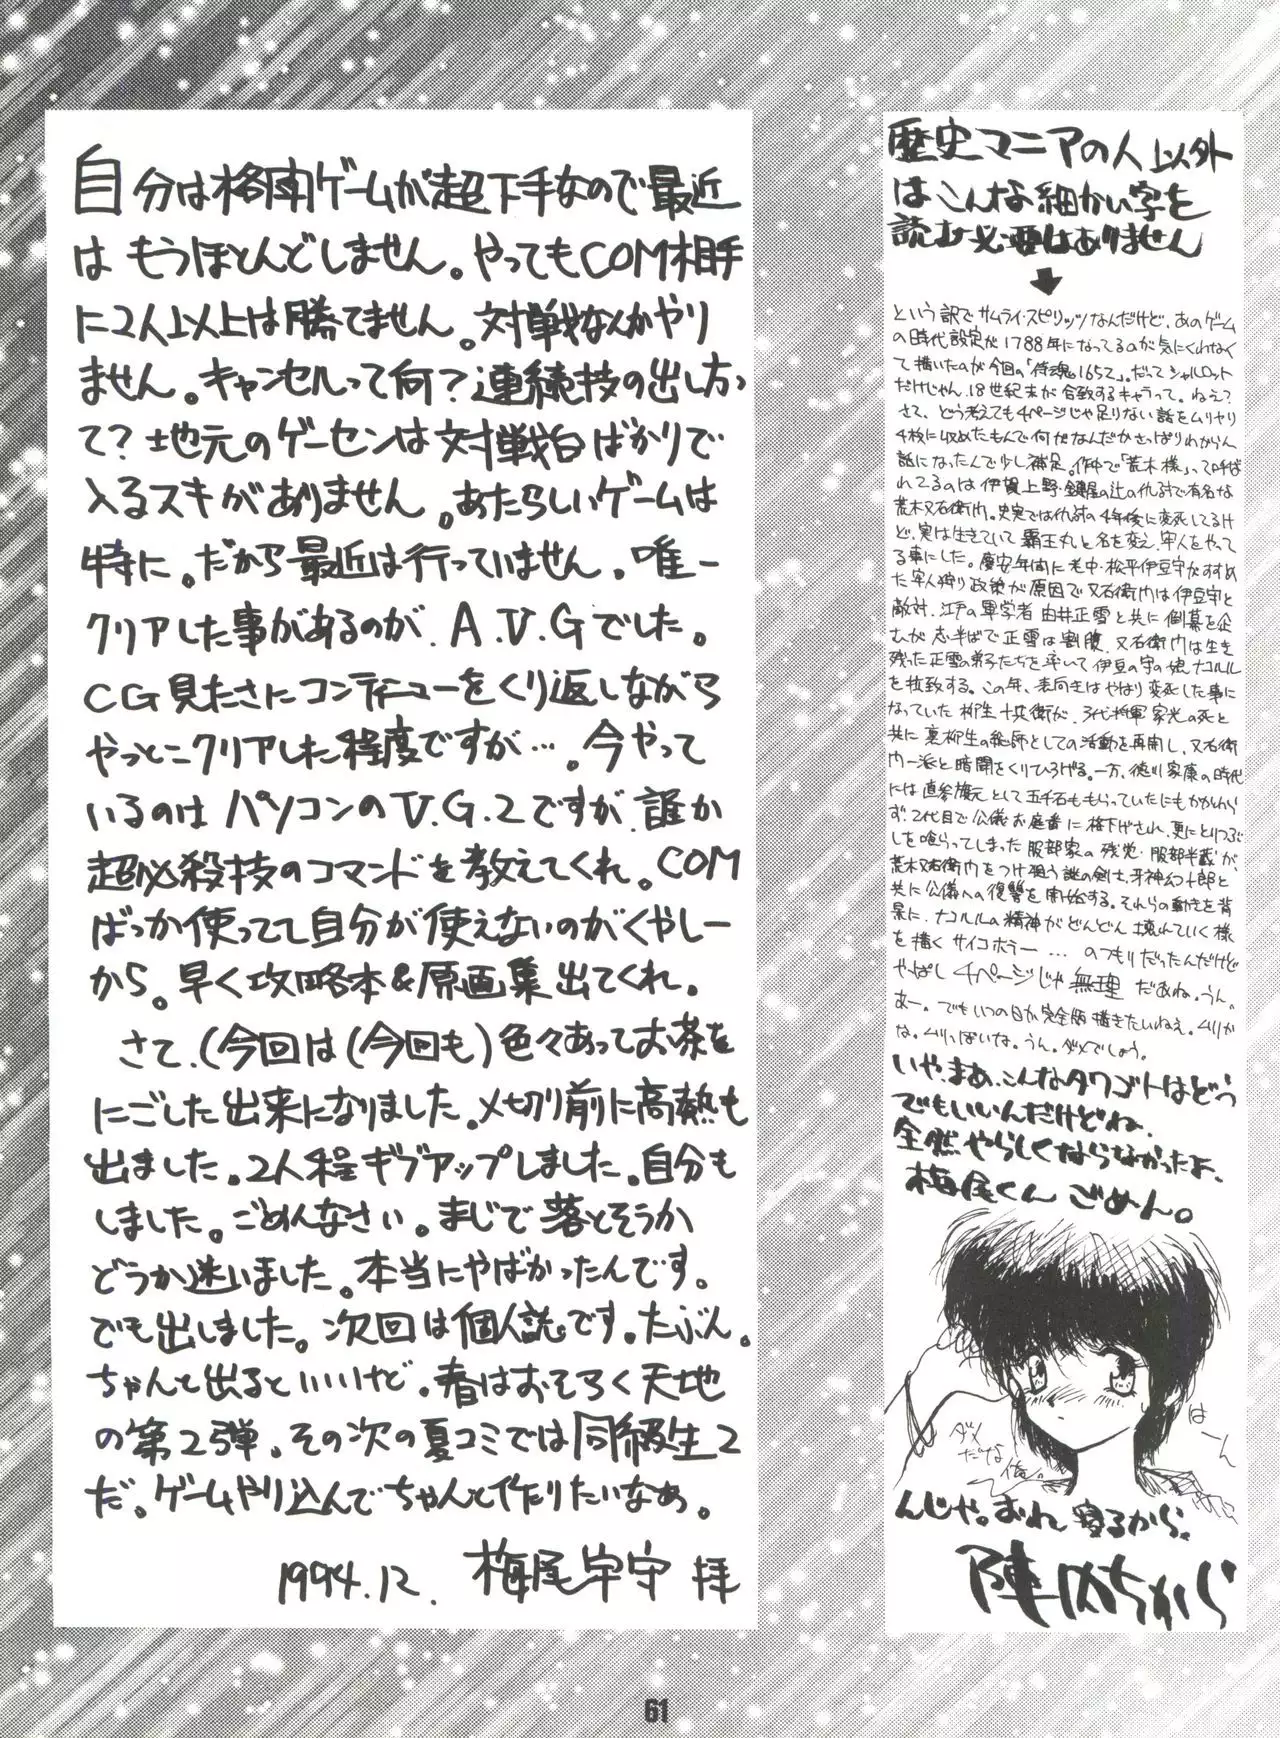 自分は格闘ゲームが超下手なので最近
はもうほとんどしません。やってもCOM相手
に2人以上は勝てません。対戦なんかやり
ません。キャンセルって何？連続技の出し方っ
て？地元のゲーセンは対戦台ばかりで
入るスキがありません。あたらしいゲームは
特に。だから最近は行っていません。唯一
クリアした事があるのが、A.V.Gでした。
CG見たさにコンティニューをくり返しながら
やっとこクリアした程度ですが…。今やって
いるのはパソコンのV.G.2ですが、誰か
超必殺技のコマンドを教えてくれ。COM
ばっか使ってて自分が使えないのがくやしー
から。早く攻略本&原画集出てくれ。
さて、(今回は(今回も)色々あってお茶を
にごした出来になりました。〆切り前に高熱も
出ました。2人程ギブアップしました。自分も
しました。ごめんなさい。まじで落とそうか
どうか迷いました。本当にやばかったんです。
でも出しました。次回は個人誌です。たぶん。
ちゃんと出るといいけど。春はおそらく天地
の第2弾、その次の夏コミでは同級生2
だ。ゲームやり込んでちゃんと作りたいなぁ。
1994.12. 梅尾宇守 拝
歴史マニアの人以外
はこんな細かい字を
読む必要はありません
という訳でサムライスピリッツなんだけど、あのゲーム
の時代設定が1788年になってるのが気にくわなく
て描いたのが今回の「侍魂1652」。だってシャルロット
だけじゃん、18世紀末が合致するキャラって。ねえ？
さて、どう考えても4ページじゃ足りない話をムリヤリ
4枚に収めたもんで何がなんだかさっぱりわからん
話になったんで少し補足。作中で「荒木様」って呼ば
れてるのは伊賀上野・鍵屋の辻の仇討で有名な
荒木又右衛門。史実では仇討の4年後に変死してるけ
ど、実は生きていて覇王丸と名を変え、牢人をやって
る事にした。慶安年間に老中・松平伊豆守がすすめ
た牢人狩り政策が原因で又右衛門は伊豆守と
敵対、江戸の軍学者 由井正雪と共に倒幕を企
むが志半ばで正雪は割腹、又右衛門は生き
残った正雪の弟子たちを率いて伊豆の守の娘、ナコルル
を拉致する。この年、表向きはやはり変死した事に
なっていた柳生十兵衛が、3代将軍家光の死と
共に裏柳生の総師としての活動を再開し、又右衛
門一派と暗闘をくりひろげる。一方、徳川家康の時代
には直参旗元として五千石ももらっていたにもかかわら
ず、2代目で公儀お庭番に格下げされ、更にとりつぶ
しを喰らってしまった服部家の残党・服部半蔵が、
荒木又右衛門をつけ狙う謎の剣士、牙神幻十郎と
共に公儀への復讐を開始する。それらの動きを背
景に、ナコルルの精神がどんどん壊れていく様
を描くサイコホラー…のつもりだったんだけど
やぱし4ページじゃ無理だあね。うん。
あー。でもいつの日か完全版描きたいねえ。ムリか
な。ムリっぽいな。うん。ダメでしょう。
いや、まあ、こんなタワゴトはどう
でもいいんだけどね、
全然やらしくならなかったよ、
梅尾くんごめん。
ダメ
だな
俺。
はーん
んじゃ。おれ寝るから。
陣内ちから
61